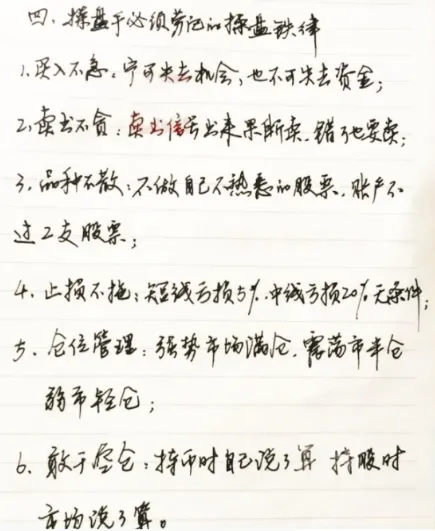 四、操盘手必须劳记的操盘铁律
1、买入不急：宁可失去机会，也不可失去资金；
2、卖出不贪：卖出信号出来果断卖、错了也要卖；
3、品种不散：不做自己不熟悉的股票、账户不
过2支股票；
4、止损不拖：短线亏损5%、中线亏损20%无条件；
5、仓位管理：强势市场满仓、震荡市半仓
弱市轻仓；
6、敢于空仓：持币时自己说了算 持股时
市场说了算。